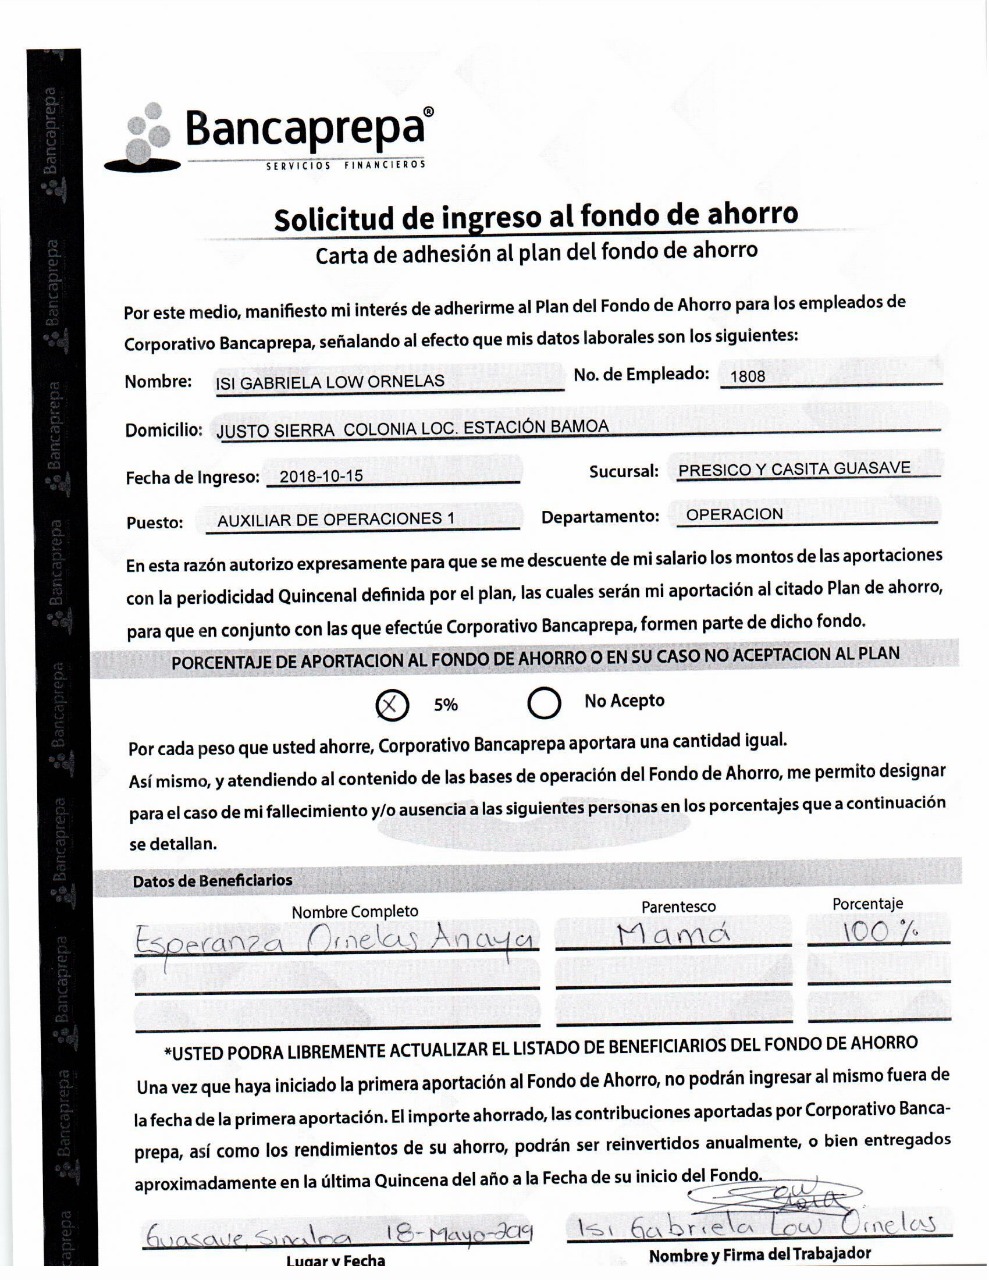 Bancaprepa®
SERVICIOS FINANCIEROS
Solicitud de ingreso al fondo de ahorro
Carta de adhesión al plan del fondo de ahorro
Por este medio, manifiesto mi interés de adherirme al Plan del Fondo de Ahorro para los empleados de
Corporativo Bancaprepa, señalando al efecto que mis datos laborales son los siguientes:
Nombre: ISI GABRIELA LOW ORNELAS No. de Empleado: 1808
Domicilio: JUSTO SIERRA COLONIA LOC. ESTACIÓN BAMOA
Fecha de Ingreso: 2018-10-15 Sucursal: PRESICO Y CASITA GUASAVE
Puesto: AUXILIAR DE OPERACIONES 1 Departamento: OPERACION
En esta razón autorizo expresamente para que se me descuente de mi salario los montos de las aportaciones
con la periodicidad Quincenal definida por el plan, las cuales serán mi aportación al citado Plan de ahorro,
para que en conjunto con las que efectúe Corporativo Bancaprepa, formen parte de dicho fondo.
PORCENTAJE DE APORTACION AL FONDO DE AHORRO O EN SU CASO NO ACEPTACION AL PLAN
X 5% No Acepto
Por cada peso que usted ahorre, Corporativo Bancaprepa aportara una cantidad igual.
Así mismo, y atendiendo al contenido de las bases de operación del Fondo de Ahorro, me permito designar
para el caso de mi fallecimiento y/o ausencia a las siguientes personas en los porcentajes que a continuación
se detallan.
Datos de Beneficiarios
Nombre Completo Parentesco Porcentaje
Esperanza Ornelas Anaya Mamá 100 %
*USTED PODRA LIBREMENTE ACTUALIZAR EL LISTADO DE BENEFICIARIOS DEL FONDO DE AHORRO
Una vez que haya iniciado la primera aportación al Fondo de Ahorro, no podrán ingresar al mismo fuera de
la fecha de la primera aportación. El importe ahorrado, las contribuciones aportadas por Corporativo Banca-
prepa, así como los rendimientos de su ahorro, podrán ser reinvertidos anualmente, o bien entregados
aproximadamente en la última Quincena del año a la Fecha de su inicio del Fondo.
Guasave, Sinaloa 18-Mayo-2019 Isi Gabriela Low Ornelas
Lugar y Fecha Nombre y Firma del Trabajador
Bancaprepa
Bancaprepa
Bancaprepa
Bancaprepa
Bancaprepa
Bancaprepa
Bancaprepa
Bancaprepa
caprepa